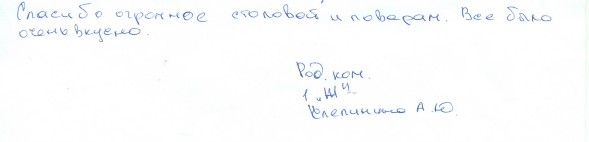 Спасибо огромное столовой и поварам. Все было
очень вкусно.
Род. ком.
1 „Ж"
Клепинина А.Ю.